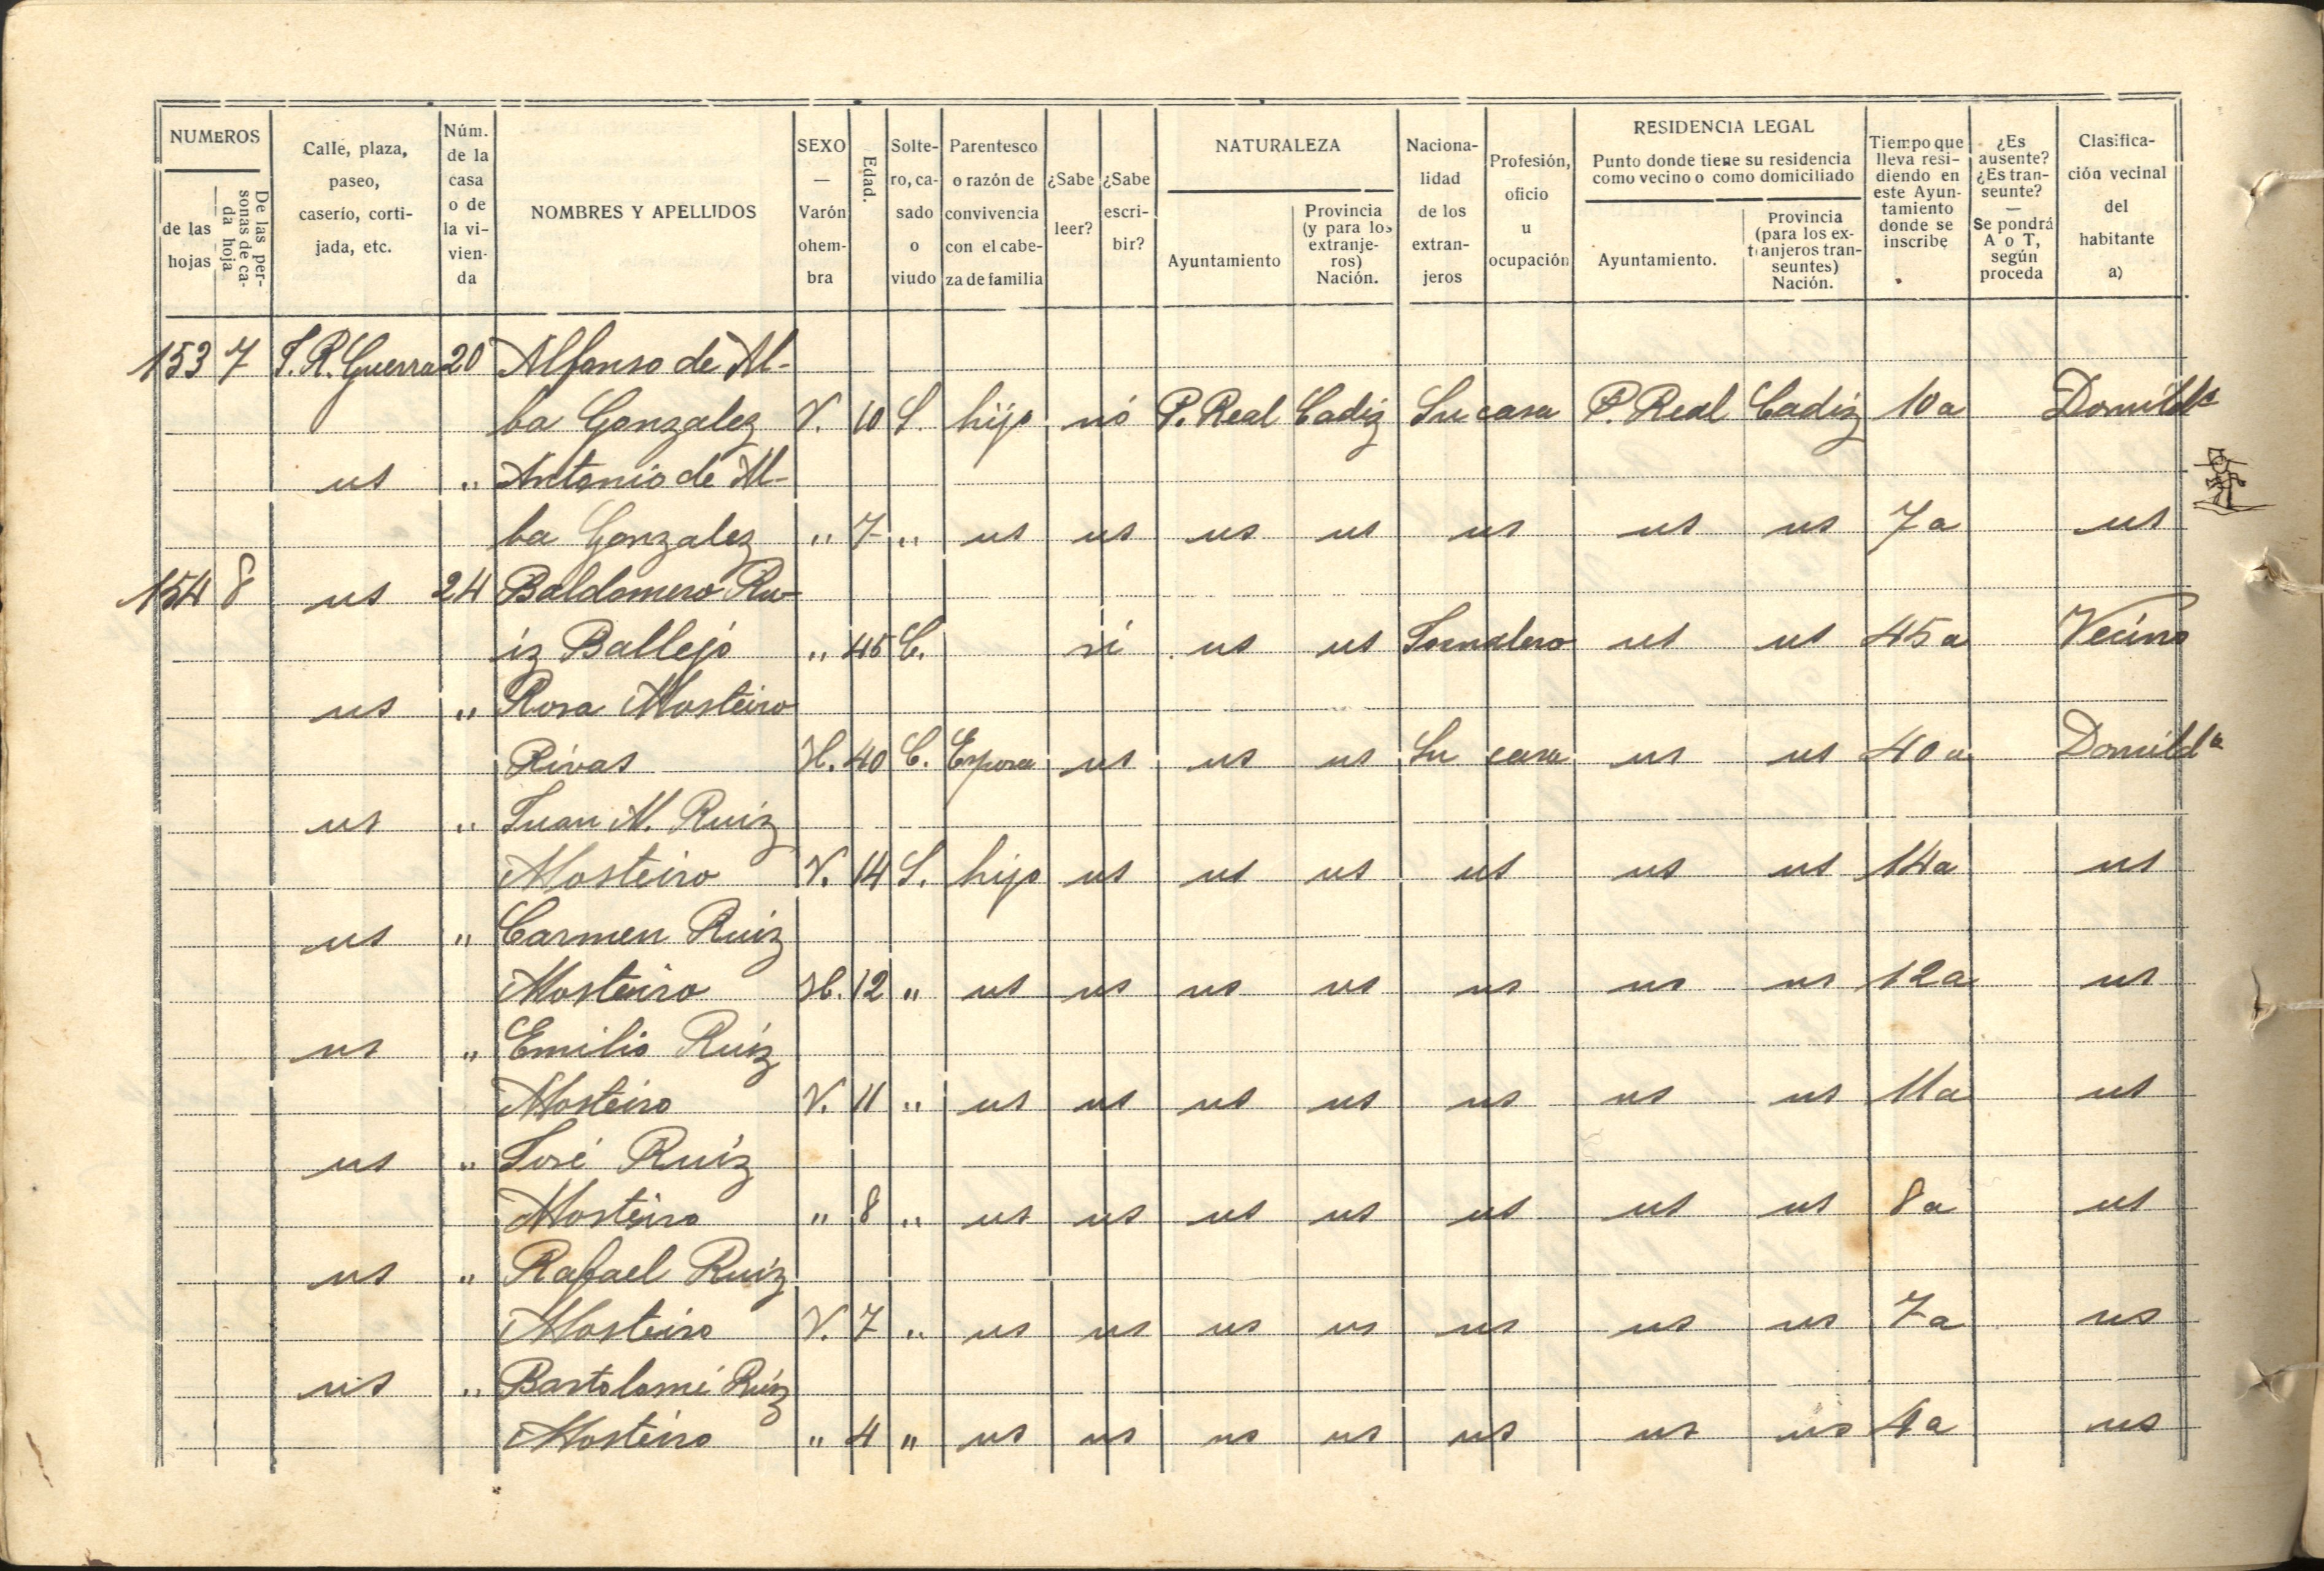 NUMEROS
de las hojas
De las personas de cada hoja
Calle, plaza, paseo, caserío, cortijada, etc.
Núm. de la casa o de la vivienda
NOMBRES Y APELLIDOS
SEXO — Varón ohembra
Edad.
Soltero, casado o viudo
Parentesco o razón de convivencia con el cabeza de familia
¿Sabe leer?
¿Sabe escribir?
NATURALEZA
Ayuntamiento
Provincia (y para los extranjeros) Nación.
Nacionalidad de los extranjeros
Profesión, oficio u ocupación
RESIDENCIA LEGAL
Punto donde tiene su residencia como vecino o como domiciliado
Ayuntamiento.
Provincia (para los extranjeros transeuntes) Nación.
Tiempo que lleva residiendo en este Ayuntamiento donde se inscribe
¿Es ausente? ¿Es transeunte? — Se pondrá A o T, según proceda
Clasificación vecinal del habitante a)
153 7 S. R. Guerra 20 Alfonso de Al-
ba Gonzalez V. 10 S. hijo nó P. Real Cadiz Su casa P. Real Cadiz 10 a Domild.º
us " Antonio de Al-
ba Gonzalez " 7 " us us us us us us us 7 a us
154 8 us 24 Baldomero Ru-
iz Ballejo " 45 C. si us us Jornalero us us 45 a Vecino
us " Rosa Mosteiro
Rivas H. 40 C. Esposa us us us Su casa us us 40 a Domild a
us " Juan M. Ruiz
Mosteiro V. 14 S. hijo us us us us us us 14 a us
us " Carmen Ruiz
Mosteiro H. 12 " us us us us us us us 12 a us
us " Emilio Ruiz
Mosteiro V. 11 " us us us us us us us 11 a us
us " José Ruiz
Mosteiro " 8 " us us us us us us us 8 a us
us " Rafael Ruiz
Mosteiro V. 7 " us us us us us us us 7 a us
us " Bartolomé Ruiz
Mosteiro " 4 " us us us us us us us 4 a us